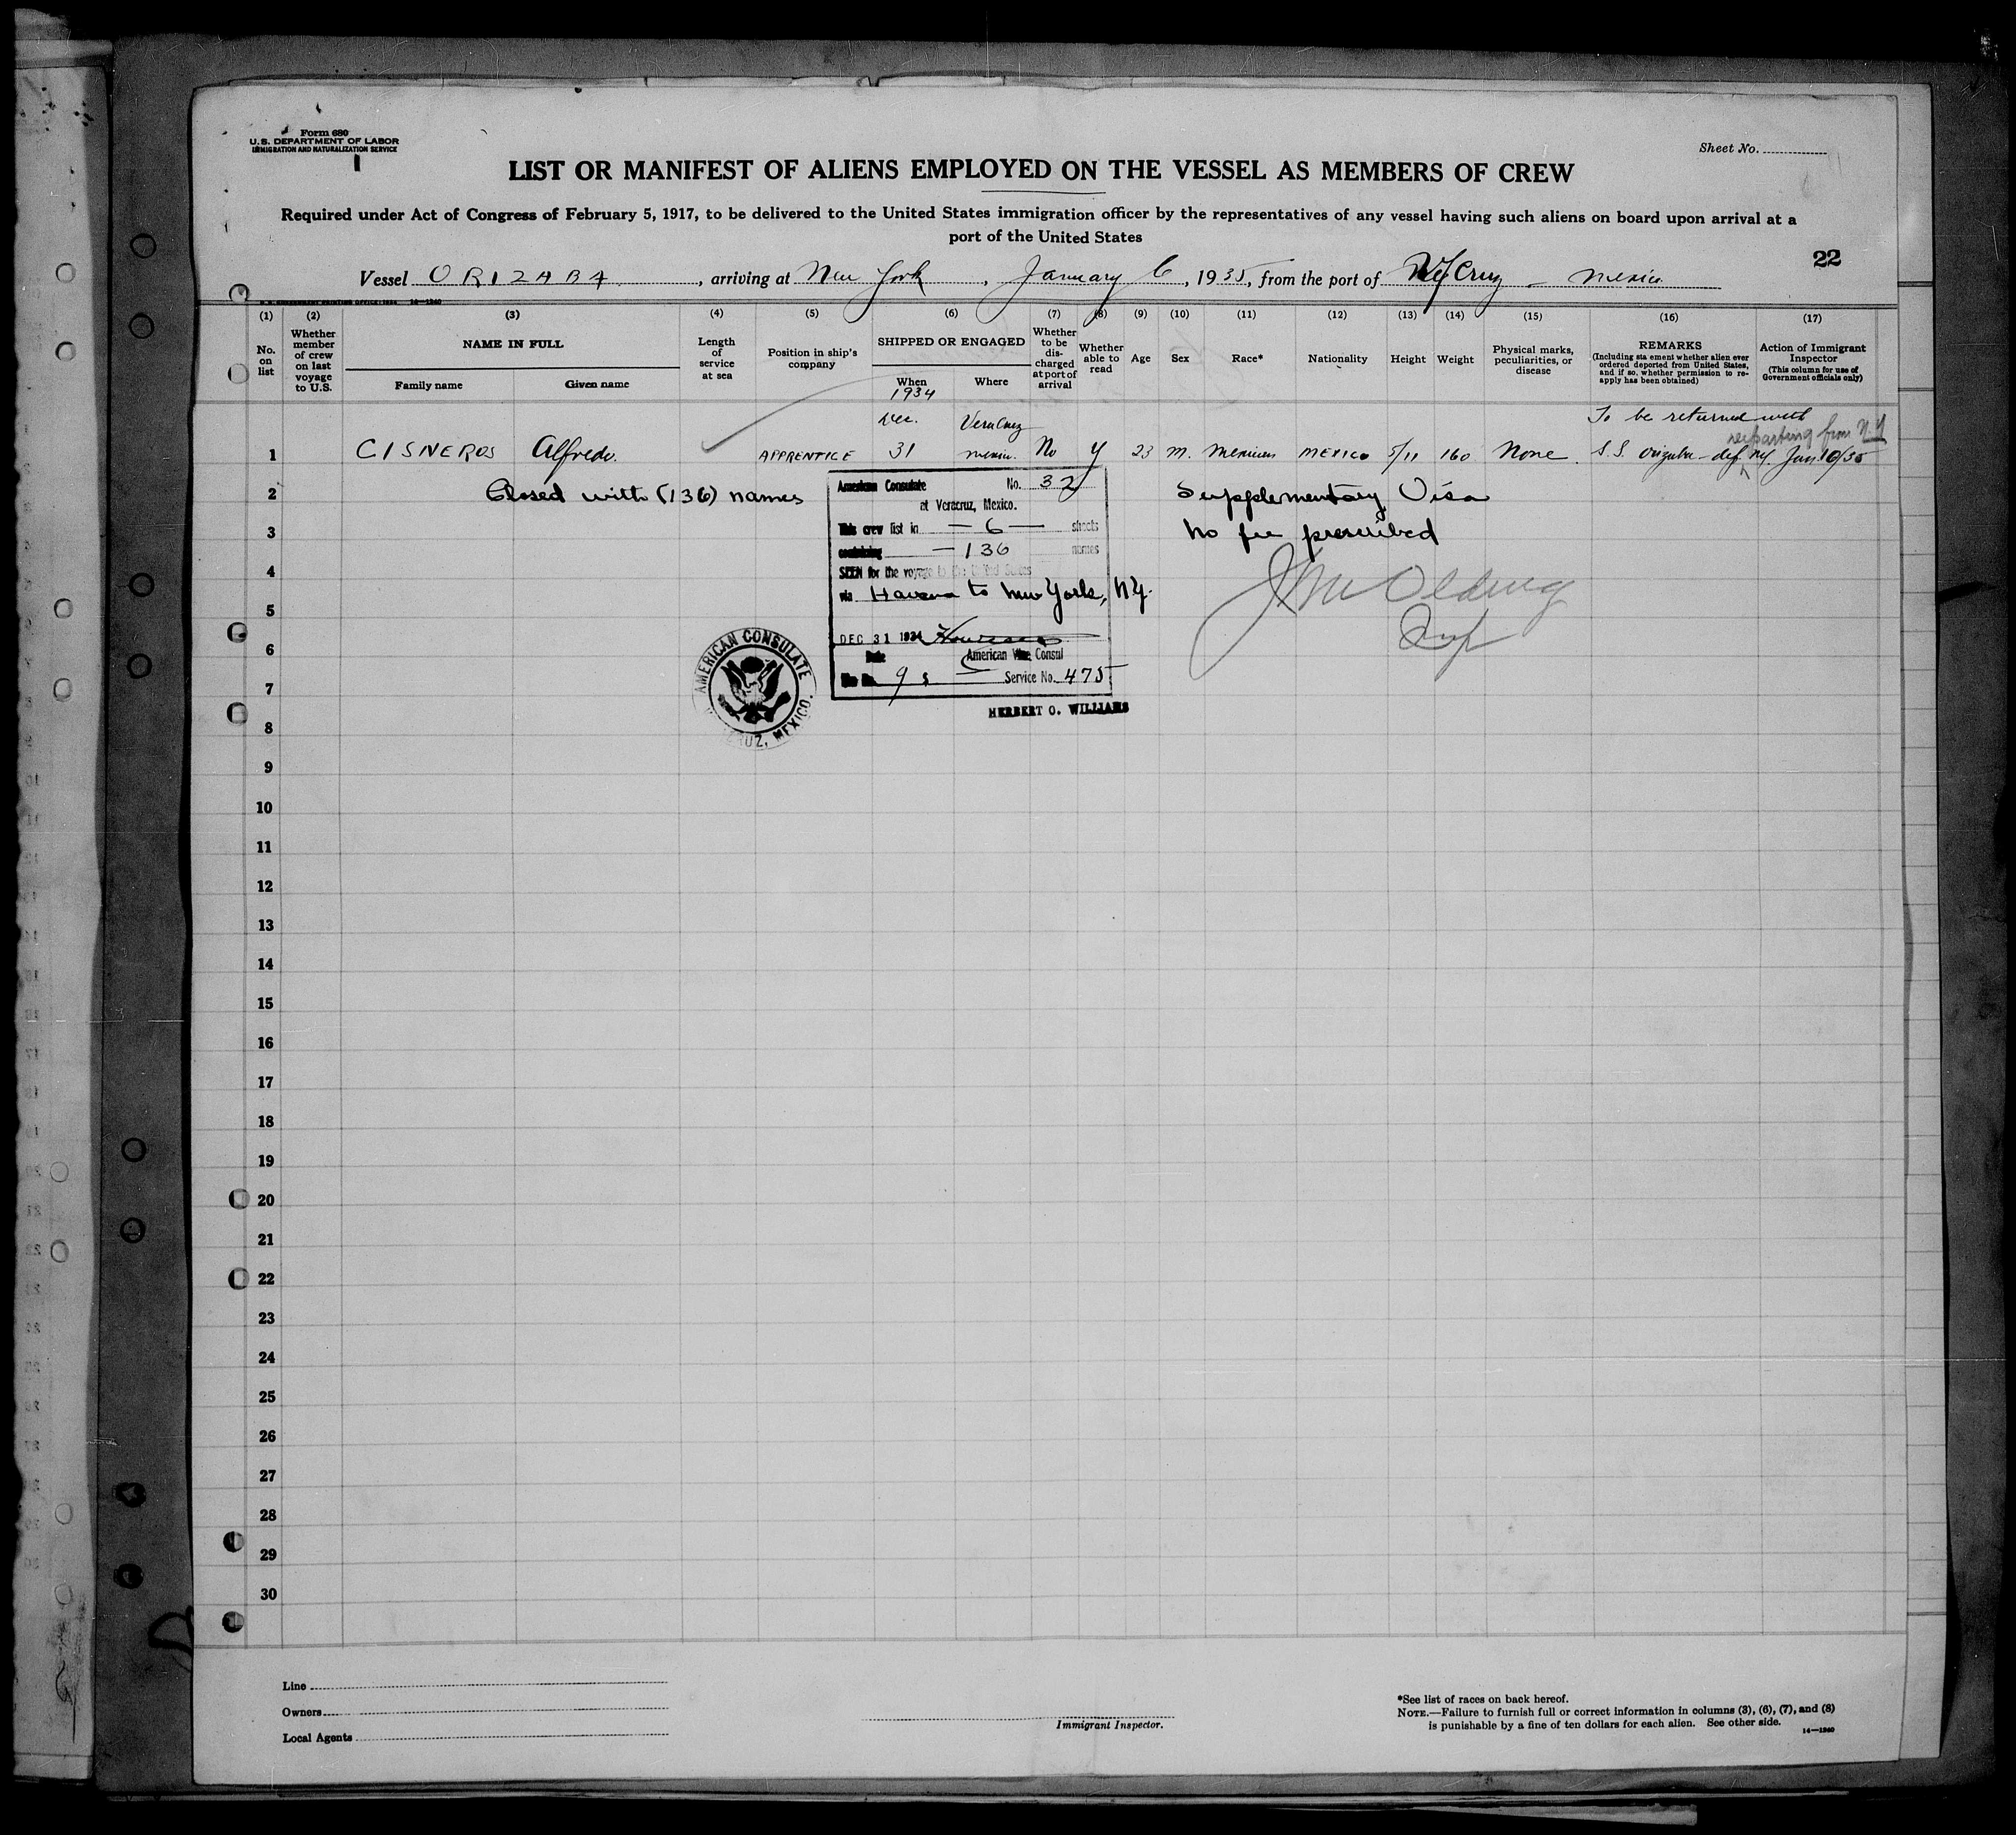 Form 680
U.S. DEPARTMENT OF LABOR
IMMIGRATION AND NATURALIZATION SERVICE
Sheet No.
LIST OR MANIFEST OF ALIENS EMPLOYED ON THE VESSEL AS MEMBERS OF CREW
Required under Act of Congress of February 5, 1917, to be delivered to the United States immigration officer by the representatives of any vessel having such aliens on board upon arrival at a
port of the United States
22
Vessel ORIZABA, arriving at New York, January 6, 1935, from the port of Cruz - Mexico
(1) (2) (3) (4) (5) (6) (7) (8) (9) (10) (11) (12) (13) (14) (15) (16) (17)
No. on list
Whether member of crew on last voyage to U.S.
NAME IN FULL
Family name Given name
Length of service at sea
Position in ship's company
SHIPPED OR ENGAGED
When Where
Whether to be discharged at port of arrival
Whether able to read
Age
Sex
Race*
Nationality
Height
Weight
Physical marks, peculiarities, or disease
REMARKS
(Including sta ement whether alien ever ordered deported from United States, and if so, whether permission to re-apply has been obtained)
Action of Immigrant Inspector
(This column for use of Government officials only)
1934
Dec. Vera Cruz To be returned with
departing from N.Y
1 CISNEROS Alfredo. APPRENTICE 31 Mexico. No y 23 m. Mexican MEXICO 5/11 160 None S.S. Orizaba - NY. Jan 10/35
2 Closed with (136) names
Supplementary Visa
No fee prescribed
American Consulate No. 32
at Veracruz, Mexico.
This crew list in - 6 - sheets
containing - 136 names
SEEN for the voyage to the United States
via Havana to New York, N.Y.
DEC 31 1934
Date American Vice Consul
9 Service No. 475
HERBERT O. WILLIAMS
AMERICAN CONSULATE
CRUZ, MEXICO.
3
4
5
6
7
8
9
10
11
12
13
14
15
16
17
18
19
20
21
22
23
24
25
26
27
28
29
30
Line
Owners
Local Agents
Immigrant Inspector.
*See list of races on back hereof.
NOTE.—Failure to furnish full or correct information in columns (3), (6), (7), and (8)
is punishable by a fine of ten dollars for each alien. See other side.
14—1240